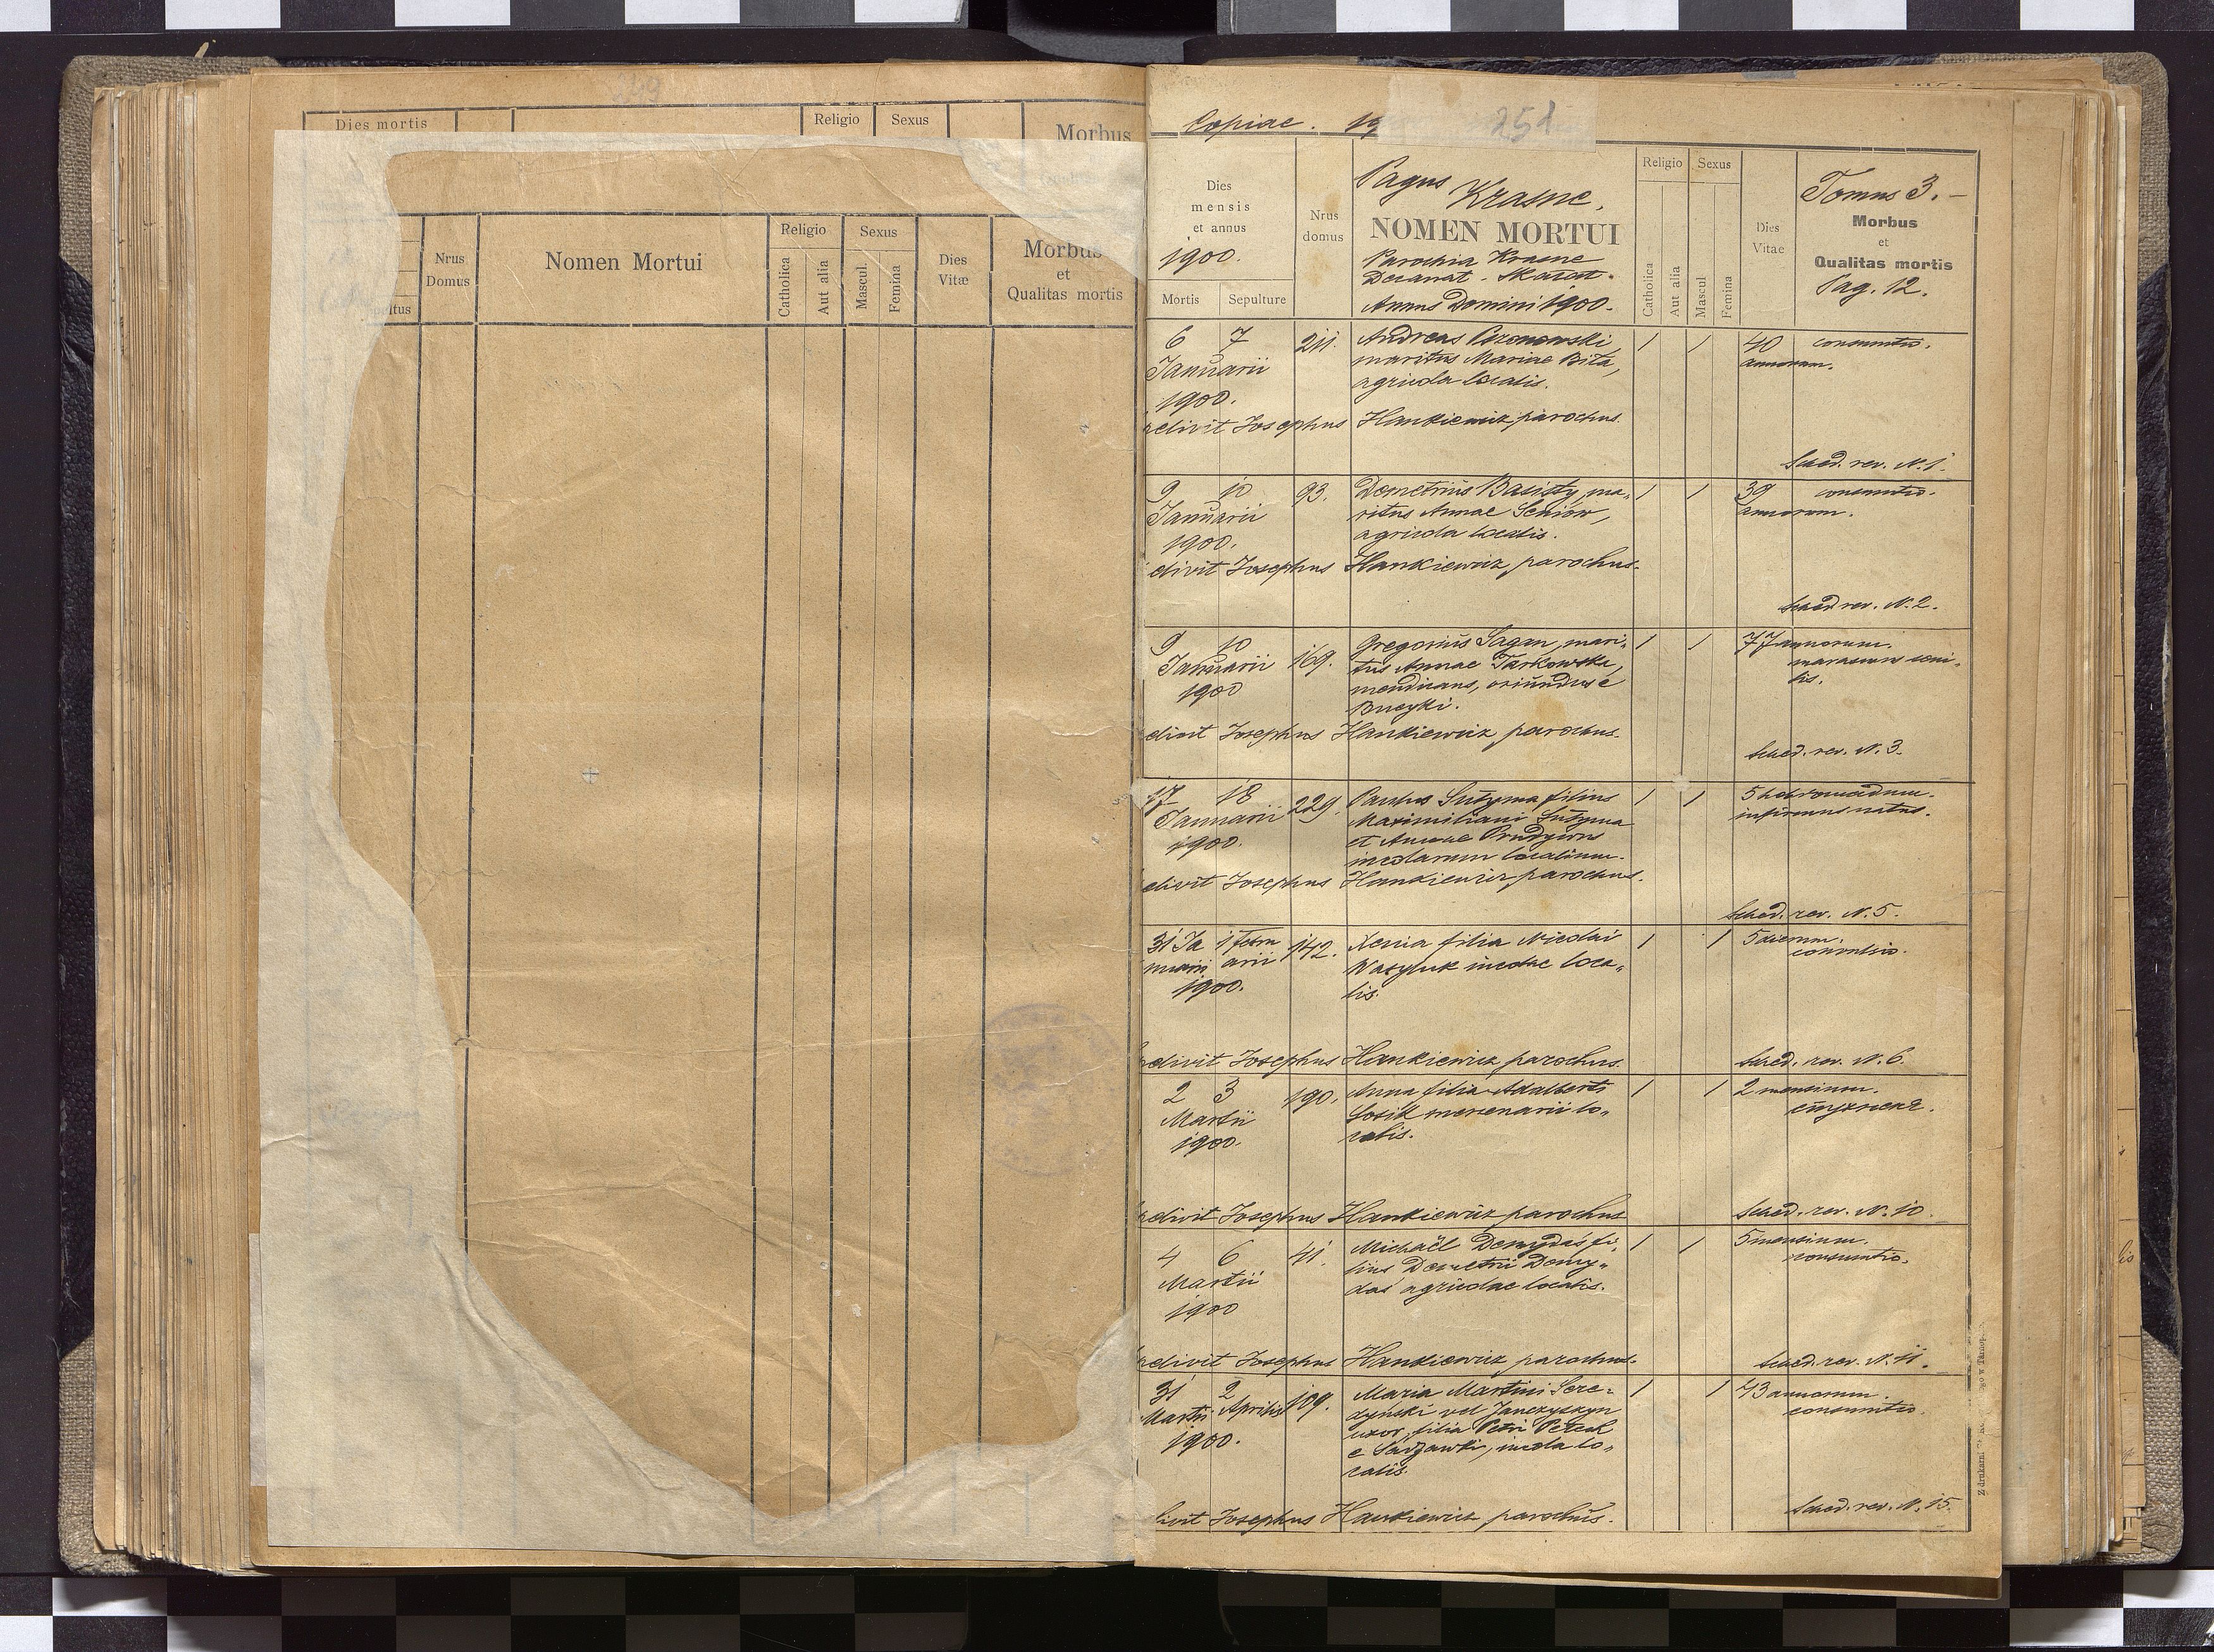 Dies mortis
Religio
Sexus
Morbus
Nrus
Domus
Nomen Mortui
Religio
Sexus
Catholica
Aut alia
Mascul.
Femina
Dies
Vitæ
Morbus
et
Qualitas mortis
Copiae. 19
251
Dies
mensis
et annus
1900.
Mortis
Sepulture
Nrus
domus
Pagus
Krasne,
NOMEN MORTUI
Parochia Krasne
Decanat. Skałat.
Annus Domini 1900.
Religio
Sexus
Catholica
Aut alia
Mascul
Femina
Dies
Vitae
Tomus 3.-
Morbus
et
Qualitas mortis
Pag. 12.
6 7 211. Andreas 1 1 40 consumtio.
Januarii maritus Mariae Bita, annorum.
1900. agricola localis.
divit Josephus Hankiewicz parochus.
Sched. rev. N. 1.
9 10 93. Demetrius Basisty, ma- 1 1 39 consumtio.
Januarii ritus Annae Seniow, annorum.
1900. agricola localis.
divit Josephus Hankiewicz parochus.
Sched. rev. N. 2.
9 10 169. Gregorius Sagan, mari- 1 1 77 annorum.
Januarii tus Annae Tarkowska, marasmus seni-
1900 mendicans, oriundus e lis.
Bucyki.
divit Josephus Hankiewicz parochus.
Sched. rev. N. 3.
17 18 229. Paulus Sutyma filius 1 1 5 hebdomadum.
Januarii Maximiliani Sutyma infirmus natus.
1900. et Annae
incolarum localium.
divit Josephus Hankiewicz parochus.
Sched. rev. N. 5.
31 Ja 1 febru 142. Xenia filia Nicolai 1 1 5 dierum.
nuarii arii Wasyluk incolae loca- convulsio.
1900. lis.
divit Josephus Hankiewicz parochus.
Sched. rev. N. 6.
2 3 190. Anna filia Adalberti 1 1 2 mensium.
Martii Sosik mercenarii lo-
1900. calis.
divit Josephus Hankiewicz parochus
Sched. rev. N. 10.
4 6 41. Michaël Demydaś fi- 1 1 5 mensium.
Martii lius Demetrii Demy- consumtio.
1900 daś agricolae localis.
divit Josephus Hankiewicz parochus.
Sched. rev. N. 11.
31 2 109. Maria Martini Sere- 1 1 43 annorum.
Martii Aprilis dyński vel Janczyszyn consumtio.
1900. uxor, filia Petri
e Sadzawki, incola lo-
calis.
divit Josephus Hankiewicz parochus.
Sched. rev. N. 15.